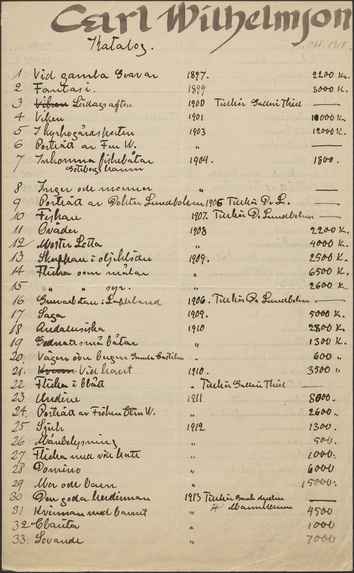 Carl Wilhelmson
Katalog.
1 Vid gamla Svarar 1897. 2200 K.
2 Fantasi. 1899 3000 K.
3 Lördagsafton 1900 Tillhör Thiel ——
4 1901 10000 K.
5 I Kyrkogårdsporten 1903 12000 K.
6 Porträtt av Fru W. " ——
7 Inkomna fiskebåtar 1904. 1800.
Göteborgs
8 Inger och mormor ——
9 Porträtt av Pontus Lundbohm 1905 Tillhör P. L. ——
10 Fiskare 1907. Tillhör Lundbohm ——
11 Oväder 1908 2200 K.
12 Moster Lotta " 4000 K.
13 Skeppare i oljekläder 1909. 2500 K.
14 Flicka som målar " 6500 K.
15 " " syr. " 2600 K.
16 i Lappland 1906. Tillhör Lundbohm ——
17 Saga 1909. 5000 K.
18 Andalusiska 1910 2800 K.
19 små båtar " 1300 K.
20. Vägen över bergen " 600 "
21. Vid havet 1910. 3500 "
22 Flicka i blått " Tillhör Thiel ——
23 Undine 1911 8000.
24. Porträtt av Fröken W. " 2600 "
25 1912 1300.
26 Månbelysning " 500.
27 Flicka med vit hatt " 1000.
28 Domino " 6000
29 Mor och barn " 15000.
30 Den goda herdinnan 1913 Tillhör ——
31 Kvinnan med barnet " 4500
32 " 1000
33. Sovande " 7000